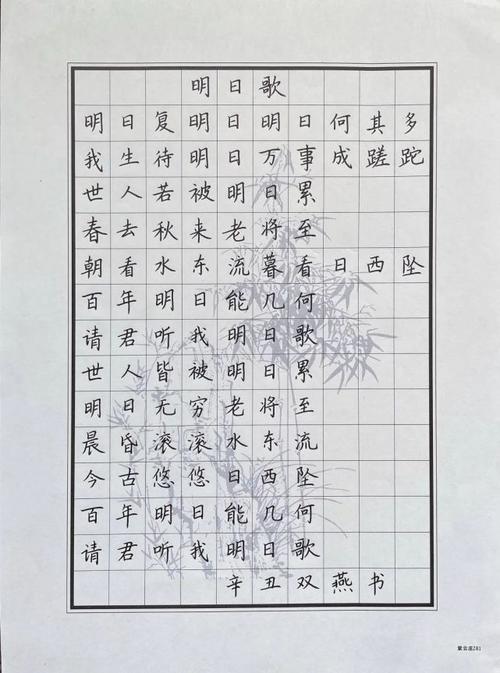 明日歌
明日复明日明日何其多
我生待明日万事成蹉跎
世人若被明日累
春去秋来老将至
朝看水东流暮看日西坠
百年明日能几何
请君听我明日歌
世人皆被明日累
明日无穷老将至
晨昏滚滚水东流
今古悠悠日西坠
百年明日能几何
请君听我明日歌
辛丑双燕书